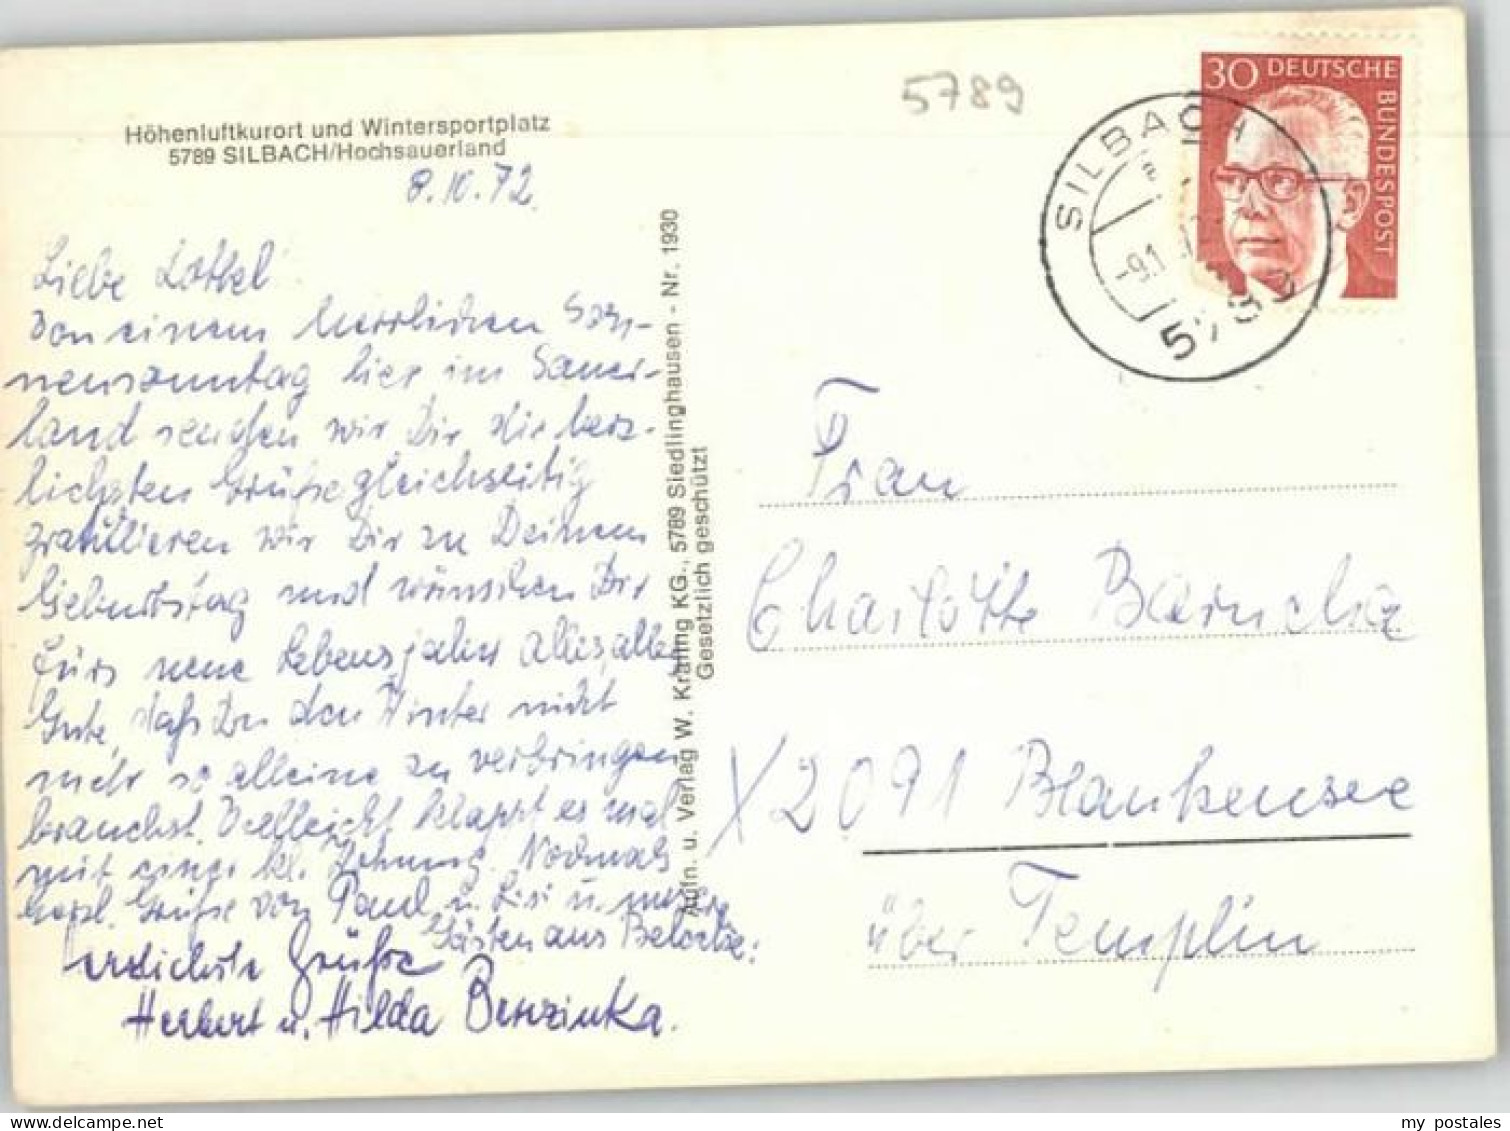 Höhenluftkurort und Wintersportplatz
5789 SILBACH/Hochsauerland
8.10.72.
Liebe Lottel
Von einem herrlichen Son-
nensonntag hier im Sauer-
land senden wir Dir die herz-
lichsten Grüße gleichzeitig
gratulieren wir Dir zu Deinem
Geburtstag und wünschen Dir
fürs neue Lebensjahr alles, alles
Gute, daß Du den Winter nicht
mehr so alleine zu verbringen
brauchst. Vielleicht klappt es mal
mit einer kl. Wohnung. Nochmals
herzl. Grüße von Paul u. Lisi u. unseren
Gästen aus
Herzlichste Grüße
Herbert u. Hilda
Aufn. u. Verlag W. Kräling KG., 5789 Siedlinghausen - Nr. 1930
Gesetzlich geschützt
5789
30 DEUTSCHE
BUNDESPOST
SILBACH
5789
Frau
Charlotte
X2091 Blankensee
über Templin
my postales